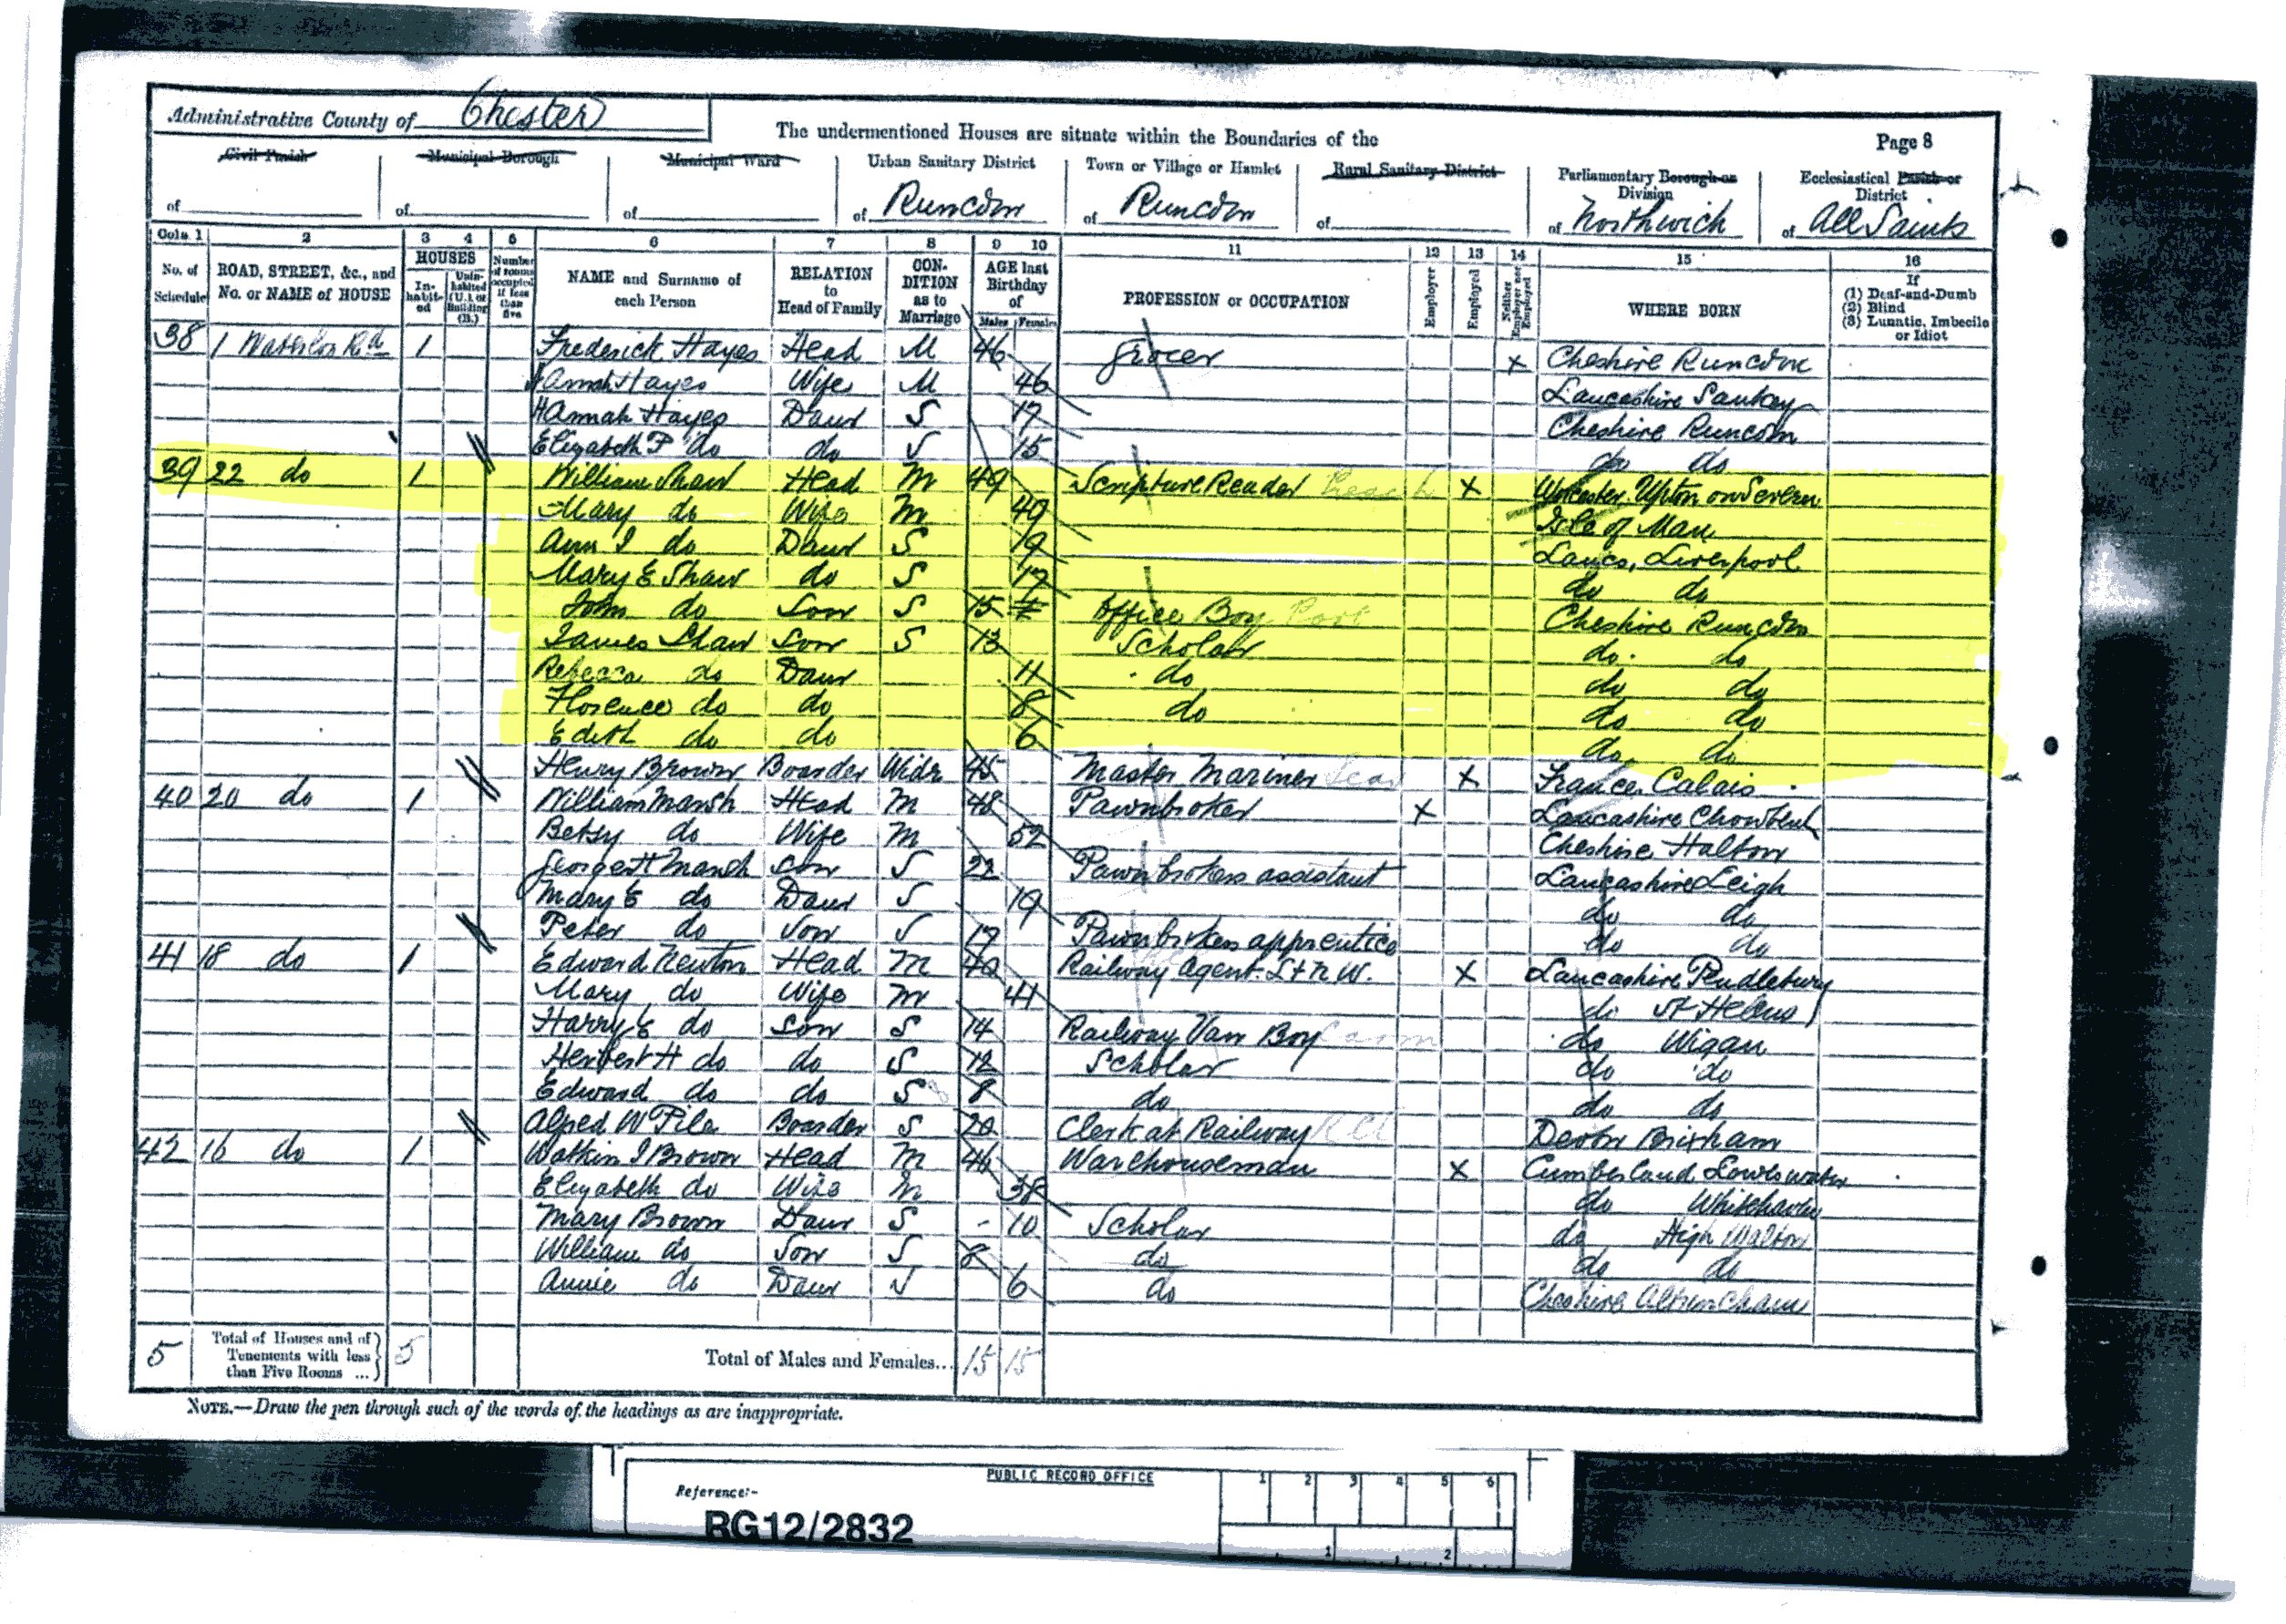 Administrative County of Chester
The undermentioned Houses are situate within the Boundaries of the
Page 8
Civil Parish of
Municipal Borough of
Municipal Ward of
Urban Sanitary District of Runcorn
Town or Village or Hamlet of Runcorn
Rural Sanitary District of
Parliamentary Borough or Division of Northwich
Ecclesiastical Parish or District of All Saints
Cols. 1 2 3 4 5 6 7 8 9 10 11 12 13 14 15 16
No. of Schedule
ROAD, STREET, &c., and No. or NAME of HOUSE
HOUSES
In-habit-ed
Unin-habited (U.), or Building (B.)
Number of rooms occupied if less than five
NAME and Surname of each Person
RELATION to Head of Family
CON-DITION as to Marriage
AGE last Birthday of
Males Females
PROFESSION or OCCUPATION
Employer
Employed
Neither Employer nor Employed
WHERE BORN
If (1) Deaf-and-Dumb (2) Blind (3) Lunatic, Imbecile or Idiot
38 1 Waterloo Rd 1 Frederick Hayes Head M 46 Grocer X Cheshire Runcorn
Hannah Hayes Wife M 46 Lancashire Sankey
Hannah Hayes Daur S 17 Cheshire Runcorn
Elizabeth P do do S 15 do do
39 22 do 1 William Shaw Head M 49 Scripture Reader X Worcester. Upton on Severn
Mary do Wife M 49 Isle of Man
Ann I do Daur S 19 Lancs, Liverpool
Mary E Shaw do S 17 do do
John do Son S 15 Office Boy Cheshire Runcorn
James Shaw Son S 13 Scholar do do
Rebecca do Daur 11 do do do
Florence do do 8 do do do
Edith do do 6 do do
Henry Brown Boarder Widr 45 Master Mariner X France Calais
40 20 do 1 William Marsh Head M 48 Pawnbroker X Lancashire Chowbent
Betsy do Wife M 52 Cheshire Halton
George H Marsh Son S 22 Pawnbrokers assistant Lancashire Leigh
Mary E do Daur S 19 do do
Peter do Son S 17 Pawnbrokers apprentice do do
41 18 do 1 Edward Newton Head M 40 Railway Agent. L & N W. X Lancashire Pendlebury
Mary do Wife M 41 do St Helens
Harry E do Son S 14 Railway Van Boy do Wigan
Herbert H do do S 12 Scholar do do
Edward do do S 8 do do do
Alfred W Pile Boarder S 20 Clerk at Railway Devon Brixham
42 16 do 1 Watkin I Brown Head M 46 Warehouseman X Cumberland Loweswater
Elizabeth do Wife M 38 do Whitehaven
Mary Brown Daur S - 10 Scholar do High Walton
William do Son S 8 do do do
Annie do Daur S 6 do Cheshire Altrincham
5 Total of Houses and of Tenements with less than Five Rooms ... 5 Total of Males and Females... 15 15
NOTE.—Draw the pen through such of the words of the headings as are inappropriate.
PUBLIC RECORD OFFICE
1 2 3 4 5 6
Reference:-
RG12/2832
1 2